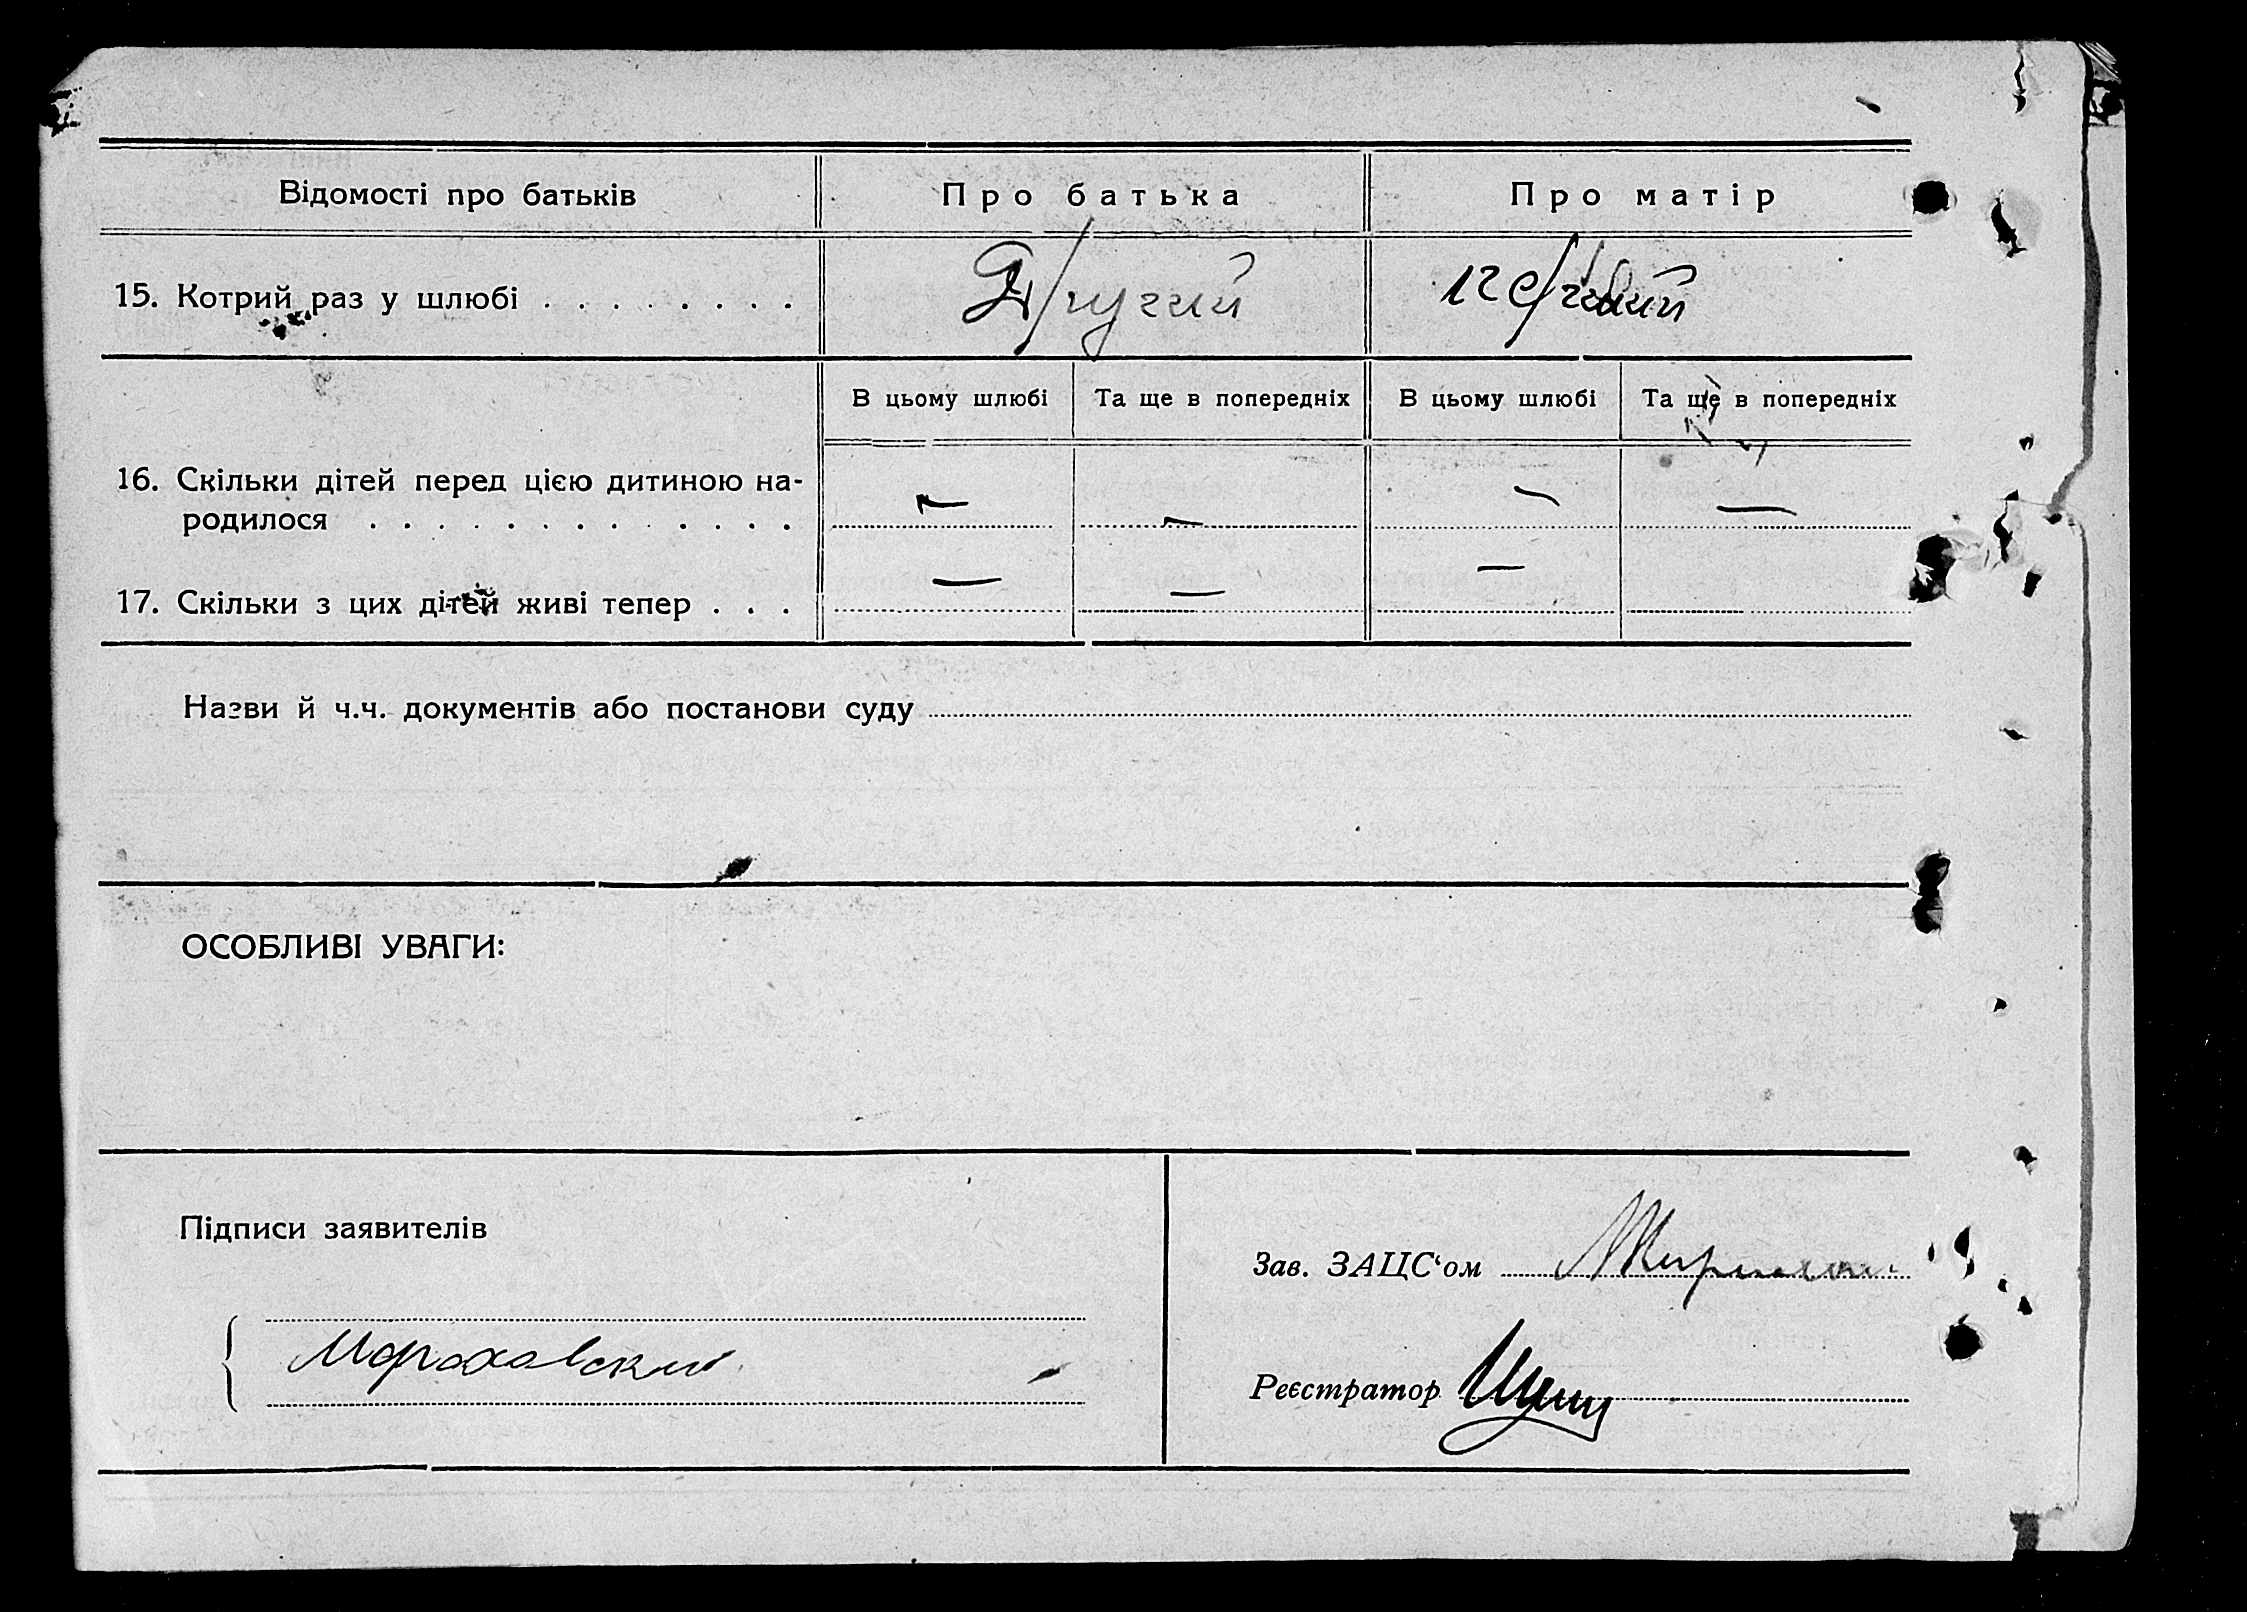 Відомості про батьків
Про батька
Про матір
15. Котрий раз у шлюбі . . . . . . . .
Другий
первий
В цьому шлюбі
Та ще в попередніх
В цьому шлюбі
Та ще в попередніх
16. Скільки дітей перед цією дитиною на-
родилося . . . . . . . . . . . . .
— — — —
17. Скільки з цих дітей живі тепер . . .
— — —
Назви й ч.ч. документів або постанови суду
ОСОБЛИВІ УВАГИ:
Підписи заявителів
Зав. ЗАЦС‘ом
Мороховский
Реєстратор